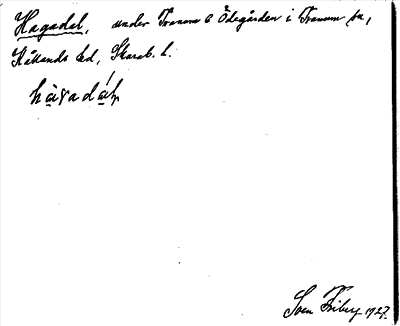 Hagadal, under Tranum 6 Ödegården i Tranum sn,
Kållands hd, Skarab. l.
hàgadál,
Sven Friberg 1927.